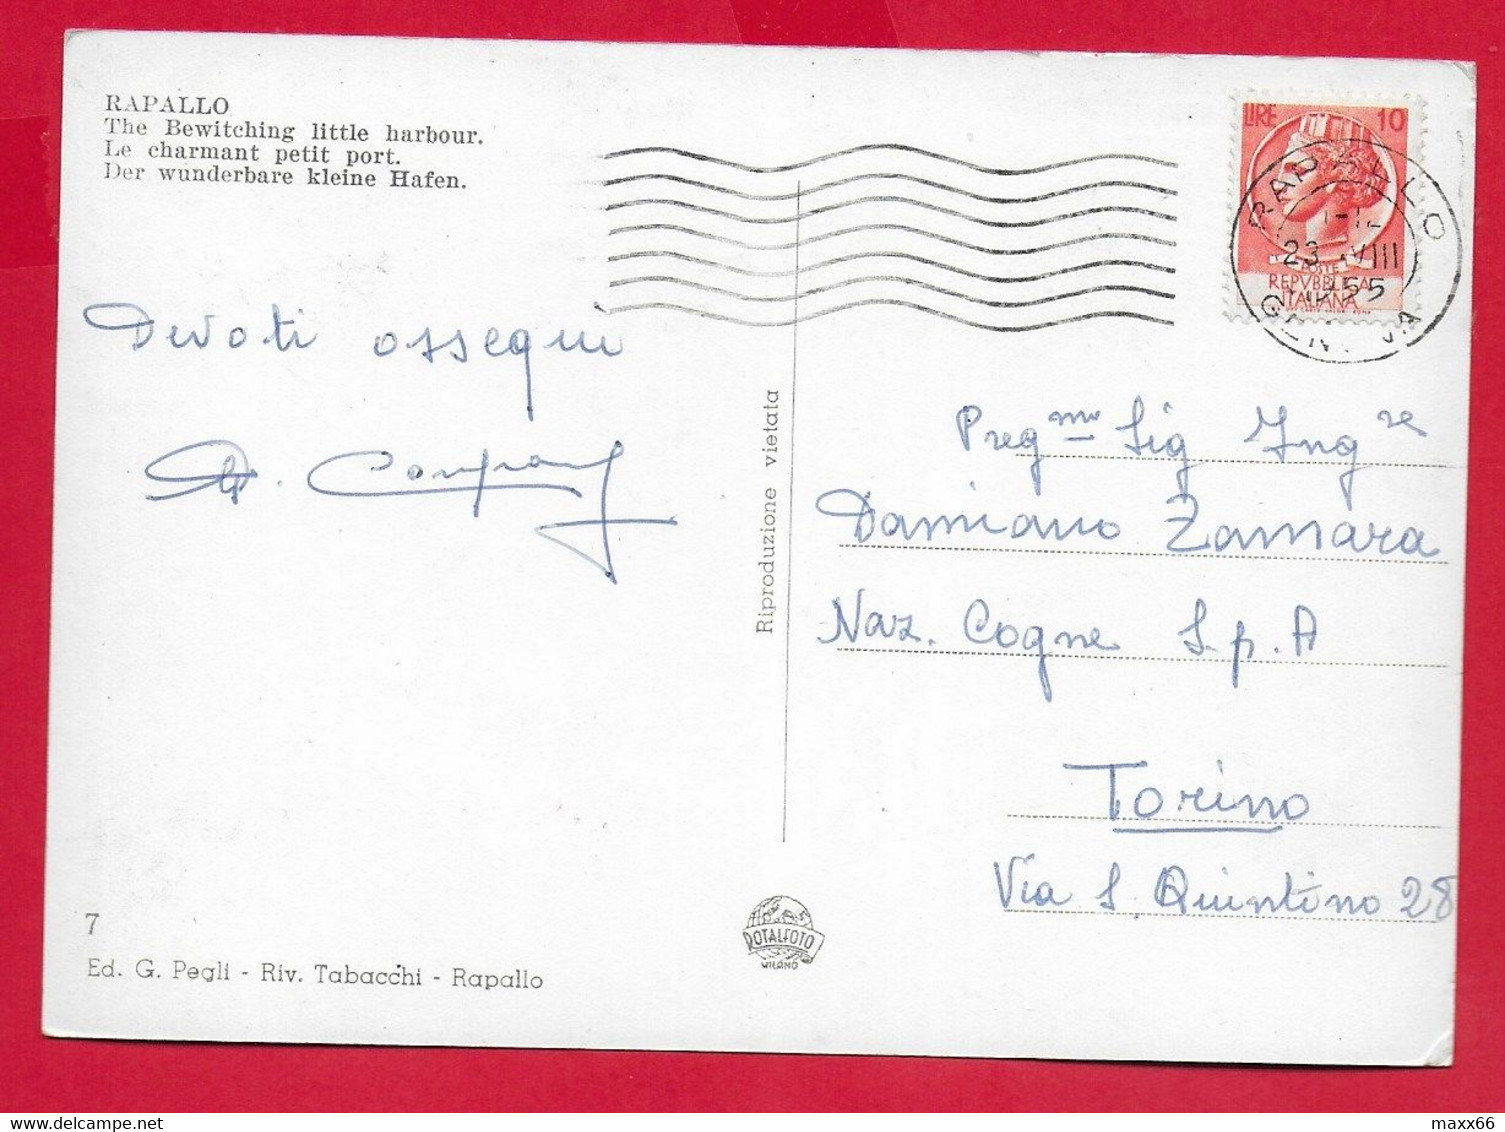 RAPALLO
The Bewitching little harbour.
Le charmant petit port.
Der wunderbare kleine Hafen.
LIRE 10
POSTE
REPVBBLICA
ITALIANA
RAPALLO
23 VIII
1955
GENOVA
Devoti ossequi
Riproduzione vietata
Preg.mo Sig Ing.re
Damiano Zamara
Naz. Cogne S.p.A
Torino
Via S. Quintino 28
7
Ed. G. Pegli - Riv. Tabacchi - Rapallo
ROTALFOTO
MILANO
maxx66